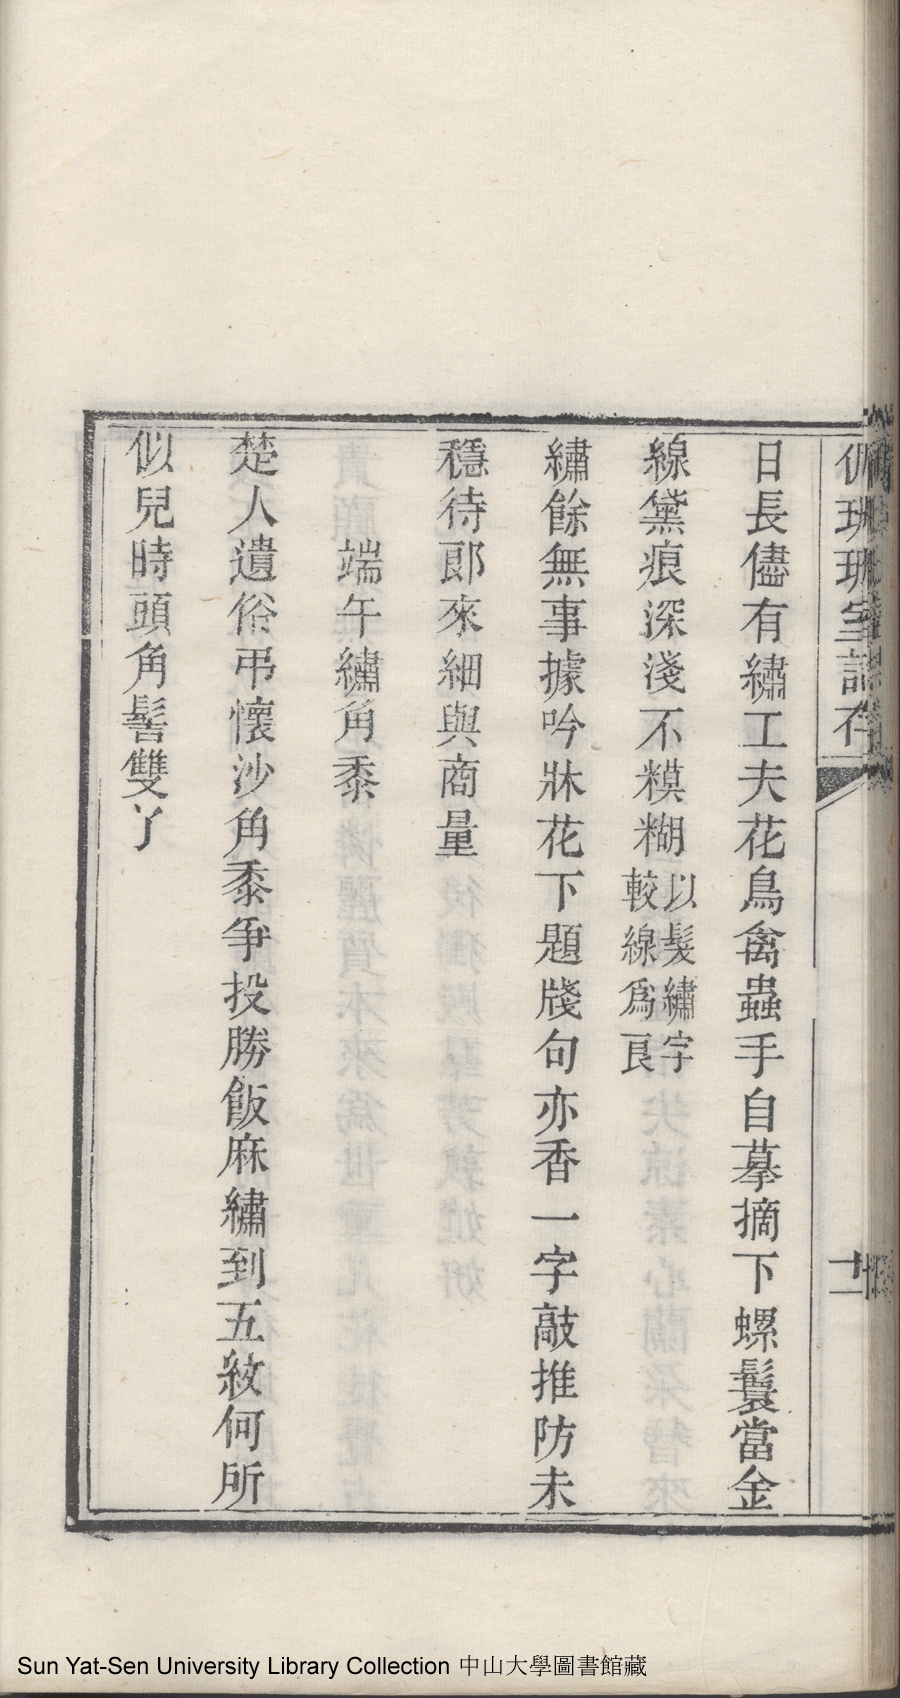 日長儘有繡工夫花鳥禽蟲手自摹摘下螺鬟當金
線黛痕深淺不糢糊以髮繡字較線爲良
繡餘無事據吟牀花下題牋句亦香一字敲推防未
穩待郎來細與商量
端午繡角黍
楚人遺俗弔懷沙角黍爭投勝飯麻繡到五紋何所
似兒時頭角髻雙丫
Sun Yat-Sen University Library Collection 中山大學圖書館藏